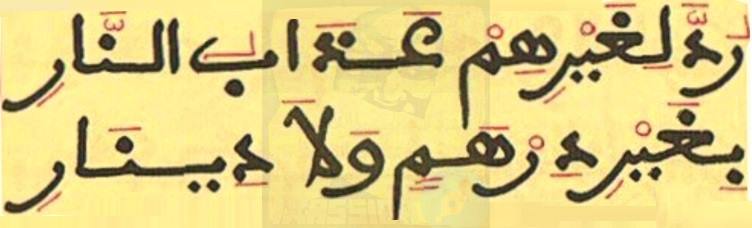 رُدَّ لِغَيْرِهِمْ عَذَابَ النَّارِ
بِغَيْرِ دِرْهَمٍ وَلَا دِينَارِ